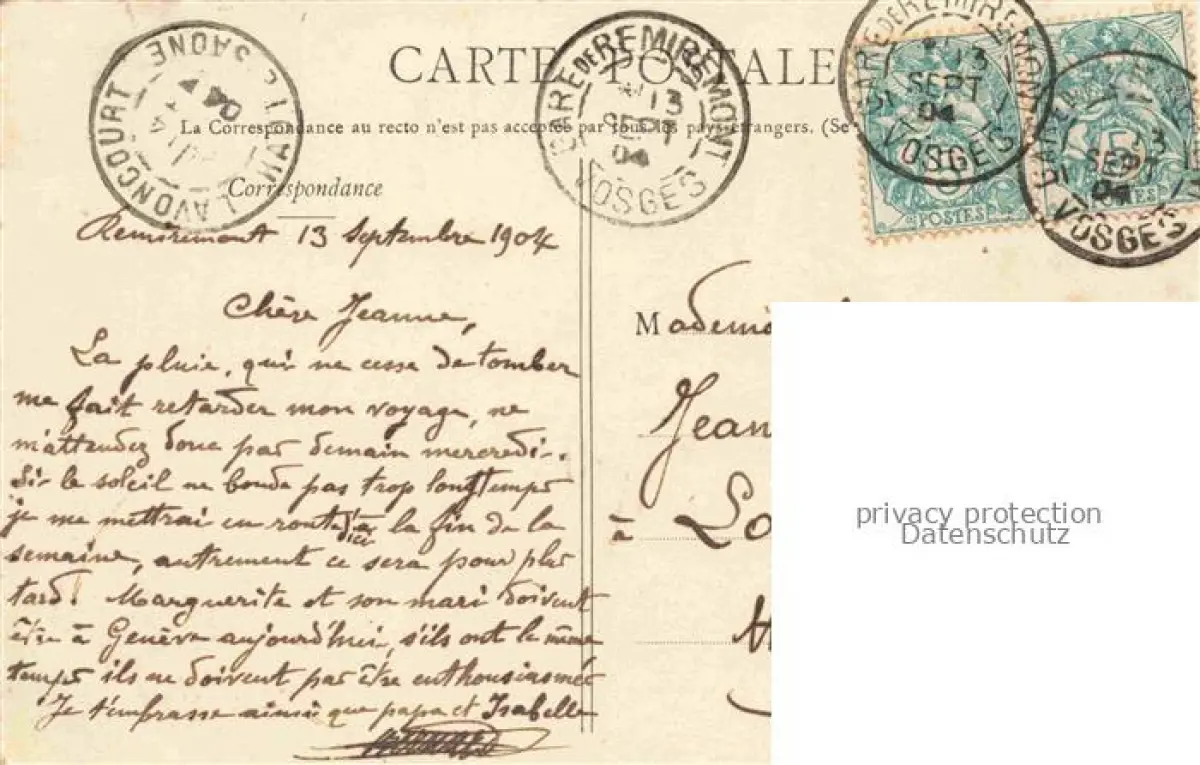 CARTE POSTALE
La Correspondance au recto n'est pas acceptée par tous les pays étrangers. (Se
Correspondance
LAVONCOURT
Hte SAONE
GARE DE REMIREMONT
13
SEPT
04
VOSGES
GARE DE REMIREMONT
13
SEPT
04
VOSGES
POSTES
13
SEPT
04
VOSGES
5
POSTES
Remiremont 13 Septembre 1904
Chère Jeanne,
La pluie, qui ne cesse de tomber
me fait retarder mon voyage, ne
m'attendez donc pas demain mercredi.
Si le soleil ne boude pas trop longtemps
je me mettrai en route d'ici à la fin de la
semaine, autrement ce sera pour plus
tard. Marguerite et son mari doivent
être à Genève aujourd'hui, s'ils ont le même
temps ils ne doivent pas être enthousiasmés
Je t'embrasse ainsi que papa et Isabelle
Mademoi
Jean
à Lo
privacy protection
Datenschutz